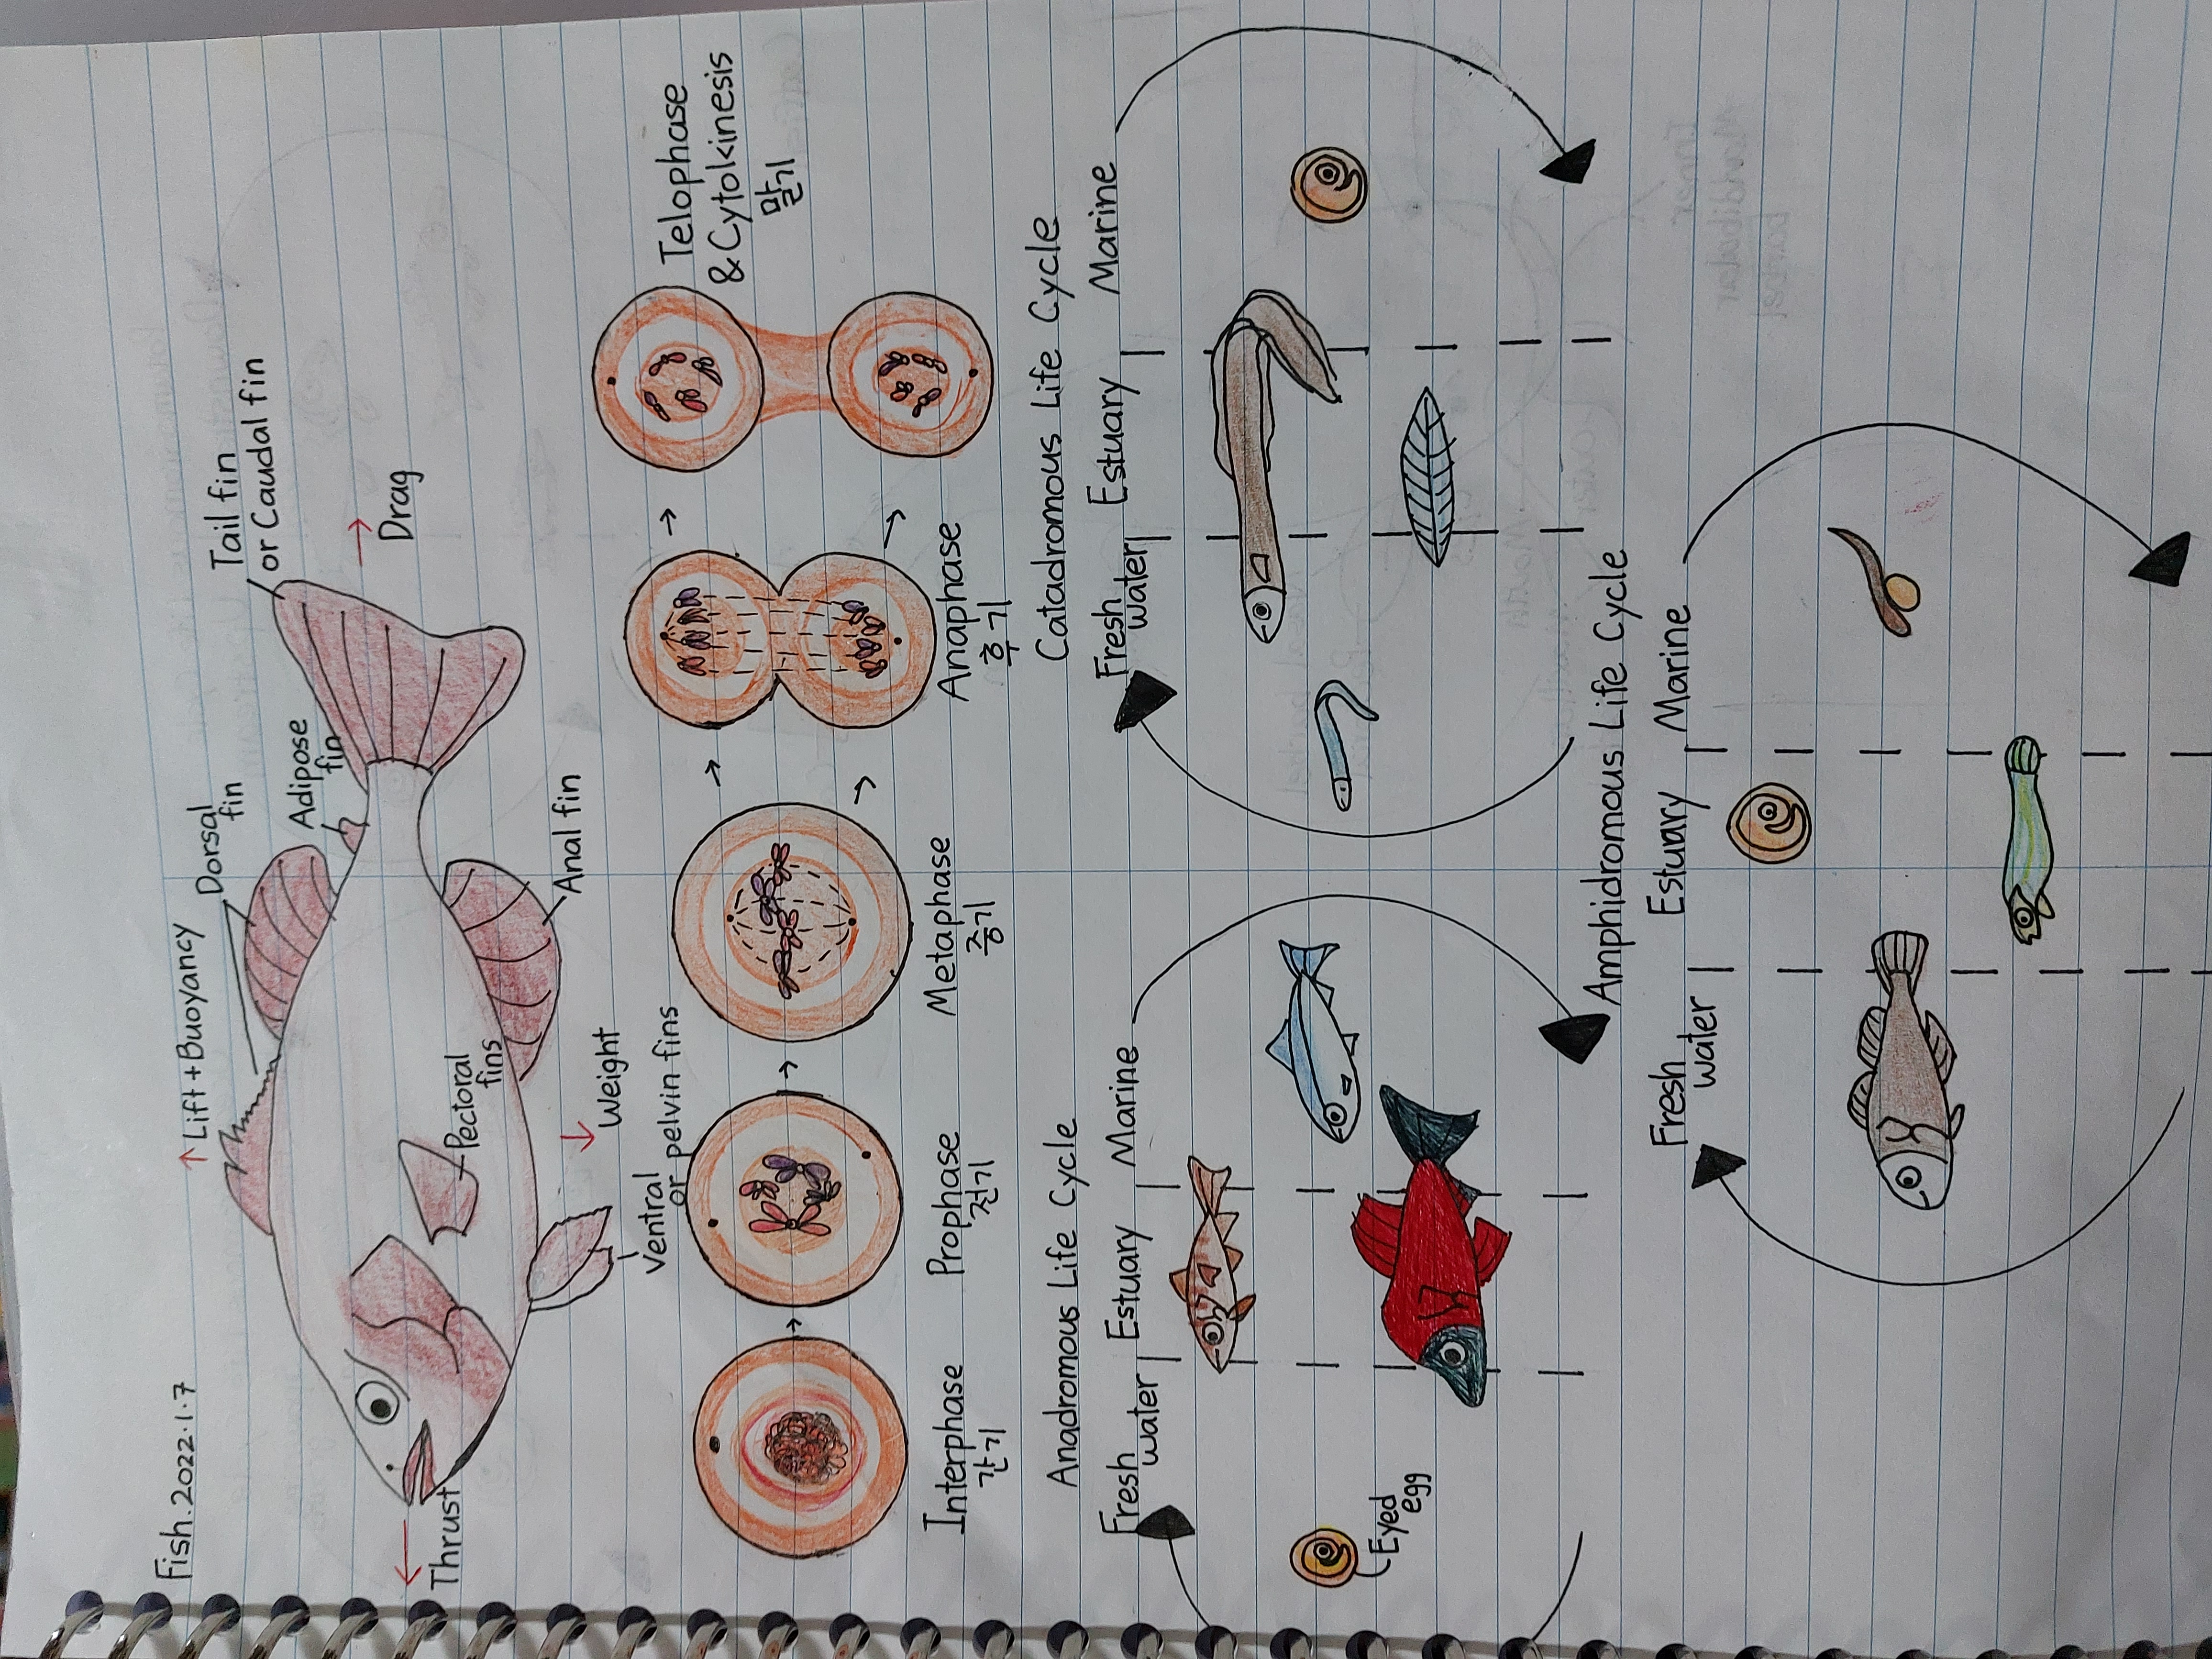 Fish. 2022.1.7
↑ Lift + Buoyancy
Dorsal
fin
Adipose
fin
Tail fin
or Caudal fin
Drag
Thrust
Pectoral
fins
Anal fin
Weight
Ventral
or pelvin fins
Interphase
간기
Prophase
전기
Metaphase
중기
Anaphase
후기
Telophase
& Cytokinesis
말기
Anadromous Life Cycle
Fresh
water
Estuary
Marine
Eyed
egg
Catadromous Life Cycle
Fresh
water
Estuary
Marine
Amphidromous Life Cycle
Fresh
water
Estuary
Marine